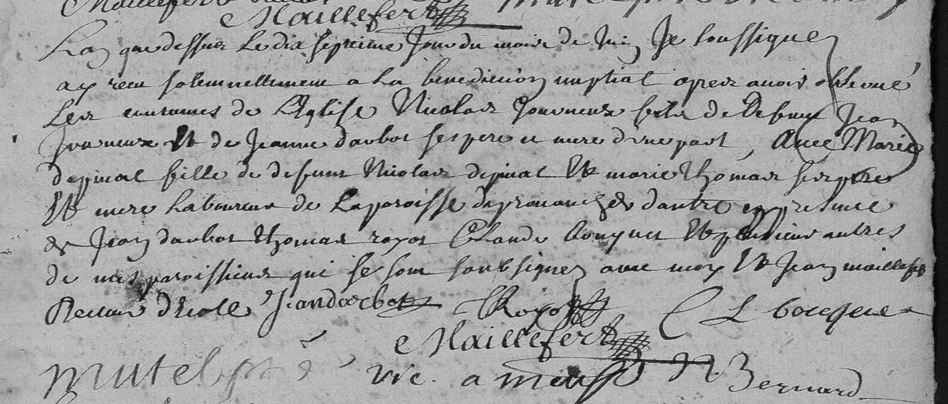 Maillefert
Lan que dessus Le dix septieme Jour du mois de Juin Je soussigne
ay receu solemnellement a La benediction nuptial apres avois observé
Les coutumes de L'Eglise Nicolas Journeux fils de Defunt Jean
Journeux Et de Jeanne darbot ses pere et mere dune part, Avec Marie
depinal fille de defunt Nicolas depinal Et marie thomas ses pere
Et mere Laboureur de La paroisse de dautre en presence
de Jean darbot thomas royot Claude Et plusieurs autres
de mes paroissiens qui se sont soubsignez avec moy Et Jean maillefert
Recteur d'Ecole Jean darbot Royot C L
Maillefert
mutel vic. a Bernard